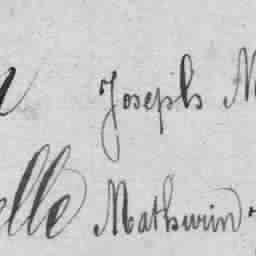 Joseph
elle Mathurin